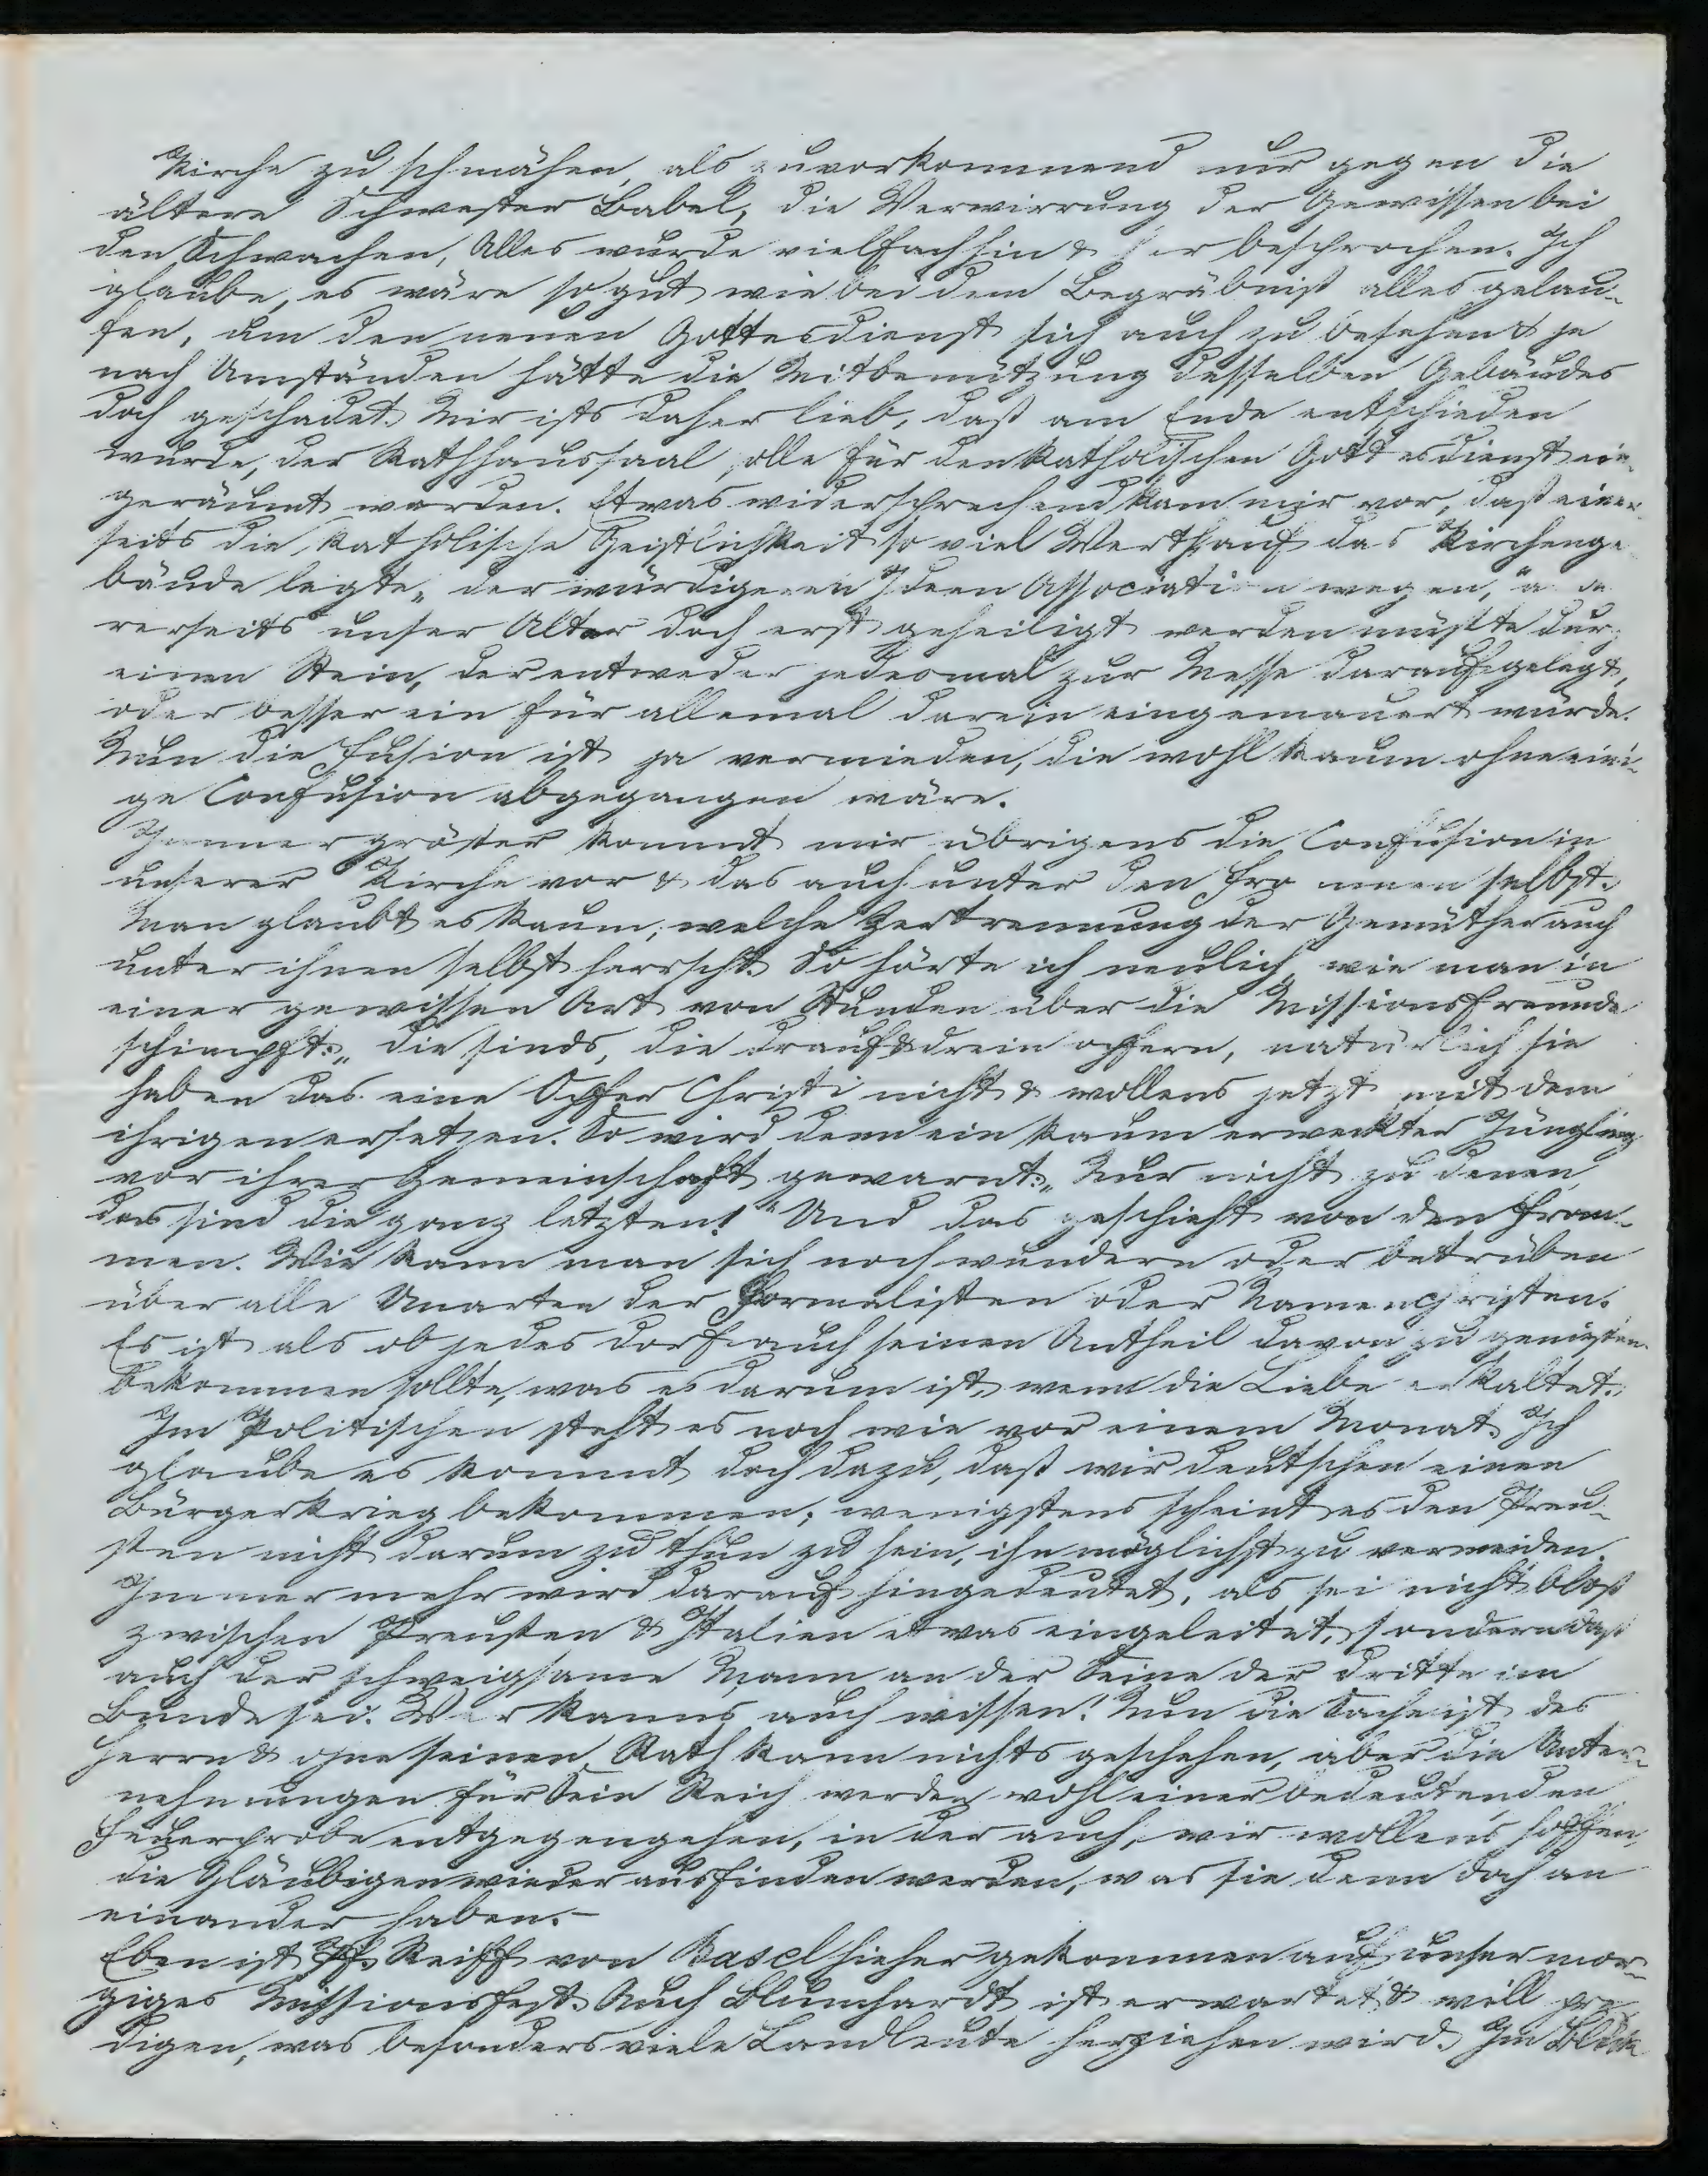 Kirche zu schmähen, als zuvorkommend nur gegen die
ältere Schwester Babel, die Verwirrung der Gewissen bei
den Schwachen, Alles wurde vielfach hin & her besprochen. Ich
glaube, es wäre so gut wie bei dem Begräbniß alles gelau-
fen, um den neuen Gottesdienst sich auch zu besehen & je
nach Umständen hätte die Mitbenützung desselben Gebäudes
doch geschadet. Mir ists daher lieb, daß am Ende entschieden
wurde, der Rathhaussaal solle für den katholischen Gottesdienst ein-
geräumt werden. Etwas widersprechend kam mir vor, daß einer-
seits die katholische Geistlichkeit so viel Werth auf das Kirchenge-
bäude legte „der würdigeren Ideen Association wegen," ande-
rerseits unser Altar doch erst geheiligt werden müßte durch
einen Stein, der entweder jedesmal zur Messe darauf gelegt,
oder besser ein für allemal darein eingemauert würde.
Nun die Fusion ist ja vermieden, die wohl kaum ohne eini-
ge Confusion abgegangen wäre.
Immer größer kommt mir übrigens die Confusion in
unserer Kirche vor & das auch unter den Frommen selbst.
Man glaubt es kaum, welche Zertrennung der Gemüther auch
unter ihnen selbst herrscht. So hörte ich neulich, wie man in
einer gewissen Art von Stunden über die Missionsfreunde
schimpft: „die sinds, die drauf & drein opfern, natürlich sie
haben das eine Opfer Christi nicht & wollens jetzt mit dem
ihrigen ersetzen. So wird denn ein kaum erweckter Jüngling
vor ihrer Gemeinschaft gewarnt: „Nur nicht zu denen,
das sind die ganz letzten!" Und das geschieht von den From-
men. Wie kann man sich noch wundern oder betrüben
über alle Unarten der Formalisten oder Namenchristen.
Es ist als ob jedes Dorf auch seinen Antheil davon zu genießen
bekommen sollte, was es darum ist, wenn die Liebe erkaltet.
Im Politischen steht es noch wie vor einem Monat. Ich
glaube es kommt doch dazu, daß wir deutschen einen
Bürgerkrieg bekommen; wenigstens scheint es den Preu-
ßen nicht darum zu thun zu sein, ihn möglichst zu vermeiden.
Immer mehr wird darauf hingedeutet, als sei nicht bloß
zwischen Preußen & Italien etwas eingeleitet, sondern daß
auch der schweigsame Mann an der Seine der dritte im
Bunde sei. Wer kanns auch wissen! Nun die Sache ist des
Herrn & ohne seinen Rath kann nichts geschehen, aber die Unter-
nehmungen für Sein Reich werden wohl einer bedeutenden
Feuerprobe entgegengehen, in der auch, wir wollens hoffen,
die Gläubigen wieder ausfinden werden, was sie denn doch an
einander haben.-
Eben ist Pf. Reiff von Basel hieher gekommen auf unser mor-
giges Missionsfest. Auch Blumhardt ist erwartet & will pre-
digen, was besonders viele Landleute herziehen wird. Im Blick